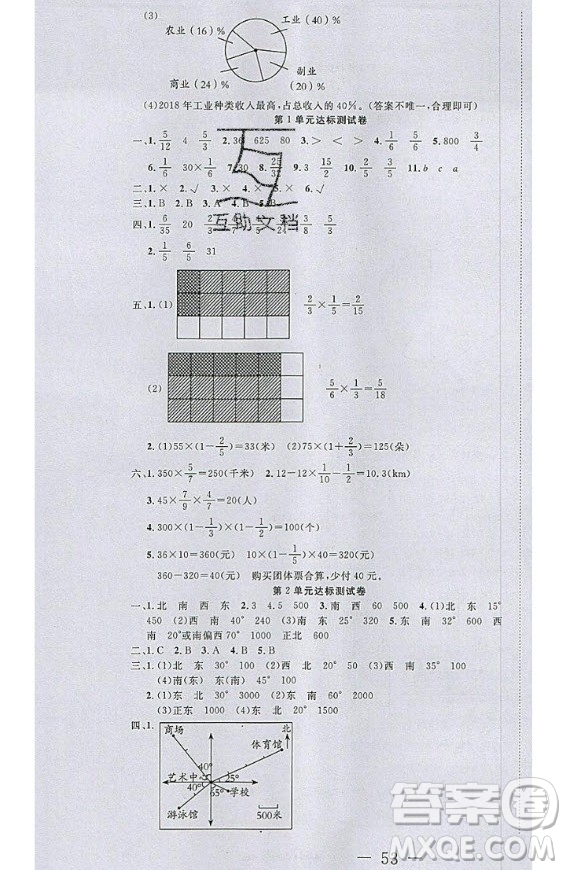 (3)
工业(40%)
农业(16%)
商业(24%)
副业
(20%)
(4)2018年工业种类收入最高,占总收入的40%。(答案不唯一,合理即可)
第1单元达标测试卷
一、1. 5/12 4 5/3 2. 36 625 80 3. > < > < 4. 1/6 5/6 5. 800 3/4
6. 1/30 7. 30 25/32 10. 11. b c a
二、1. × 2. √ 3. × 4. × 5. × 6. √
三、1. B 2. B 3. A 4. B 5.
四、1. 6/35 20
2. 1/5 6/5 31
五、1. (1)
2/3×1/5=2/15
(2)
5/6×1/3=5/18
2. (1)55×(1-2/5)=33(米) (2)75×(1+2/3)=125(朵)
六、1. 350×5/7=250(千米) 2. 12-12×1/10-1/2=10.3(km)
3. 45×7/9×4/7=20(人)
4. 300×(1-1/3)×(1-1/2)=100(个)
5. 36×10=360(元) 40×10×(1-1/5)=320(元)
360-320=40(元) 购买团体票合算,少付40元。
第2单元达标测试卷
一、1. 北 南 西 东 2. 3 4.5 500 3. 南 西 60 500 4. (1)北 东 15°
450 (2)西 南 60° 400 (3)西 北 20° 500 5. 东 南 32° 600 西
南 20°或南偏西70° 1000 正北 600
二、1. C 2. B 3. A 4. B 5. B
三、1. (1)北 东 30° 100 (2)西 北 20 50 (3)西 南 35° 100
(4)南(东) 东(南) 45° 100
2. (1)东 北 30° 1000 (2)东 南 30° 2000
(3)正东 1000 (4)东 北 20° 1500
四、1.
商场
北
体育馆
40°
艺术中心
25°
40°
65°
学校
游泳馆
500米
互助文档
答案圈
MXQE.COM
— 53 —